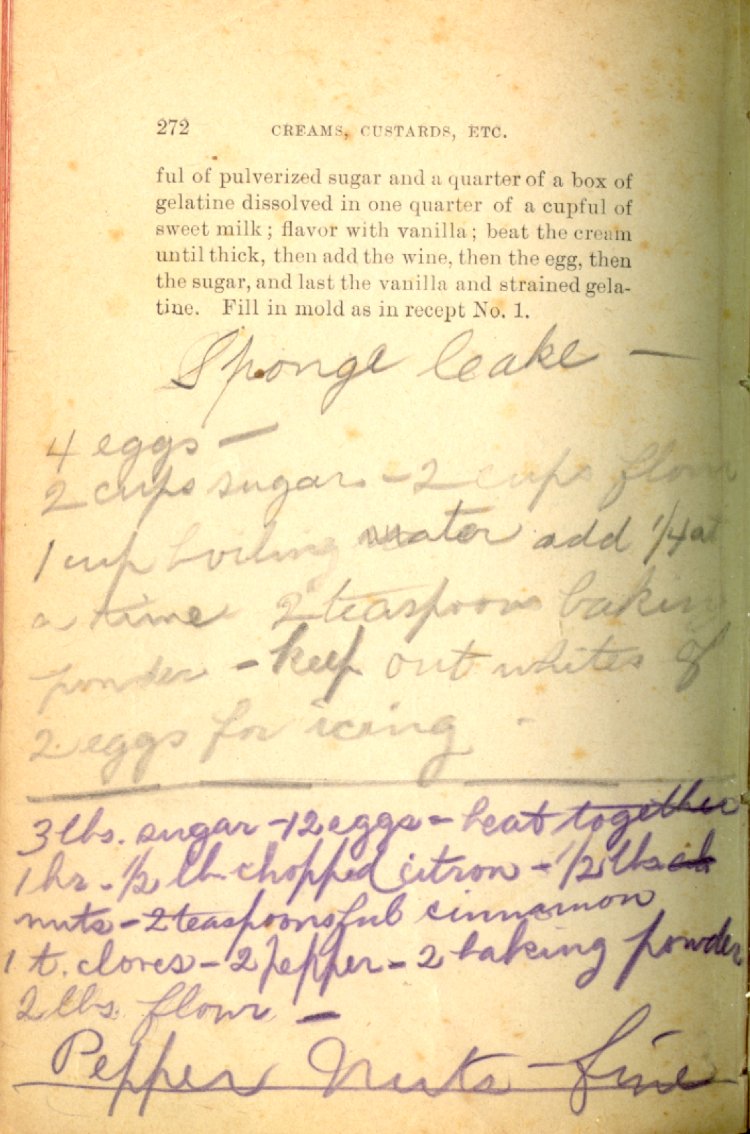 272 CREAMS, CUSTARDS, ETC.
ful of pulverized sugar and a quarter of a box of
gelatine dissolved in one quarter of a cupful of
sweet milk; flavor with vanilla; beat the cream
until thick, then add the wine, then the egg, then
the sugar, and last the vanilla and strained gela-
tine. Fill in mold as in recept No. 1.
Sponge Cake —
4 eggs —
2 cups sugar - 2 cups flour
1 cup boiling water add 1/4 at
a time 2 teaspoons baking
powder - keep out whites of
2 eggs for icing -
3 lbs. sugar - 12 eggs - beat together
1 hr. - 1/2 lb. chopped citron - 1/2 lbs
nuts - 2 teaspoonsful cinnamon
1 t. cloves - 2 pepper - 2 baking powder
2 lbs. flour —
Pepper Nuts - fine